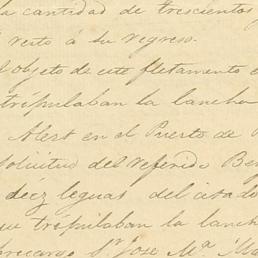 la cantidad de trescientos
resto á su regreso.
objeto de este fletamento
tripulaban la lancha
Alert en el Puerto de
solicitud del referido Ben
diez leguas del citado
que tripulaban la lanc
sobrecargo Sr José Mª